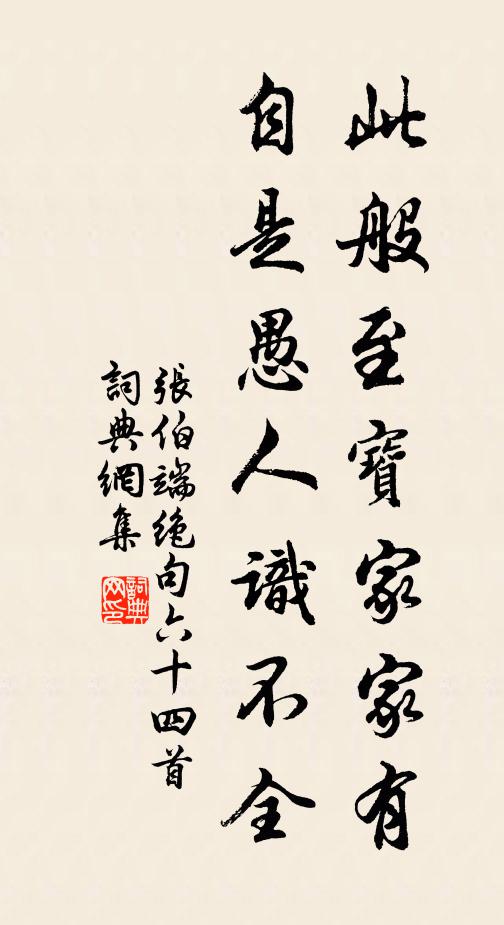 此般至寶家家有
自是愚人識不全
張伯端絶句六十四首
詞典網集
詞典網印